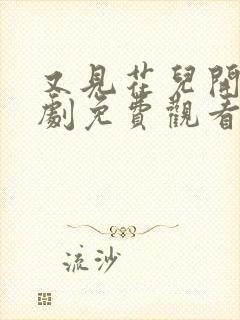 又見花兒開
劇免費觀看
流沙